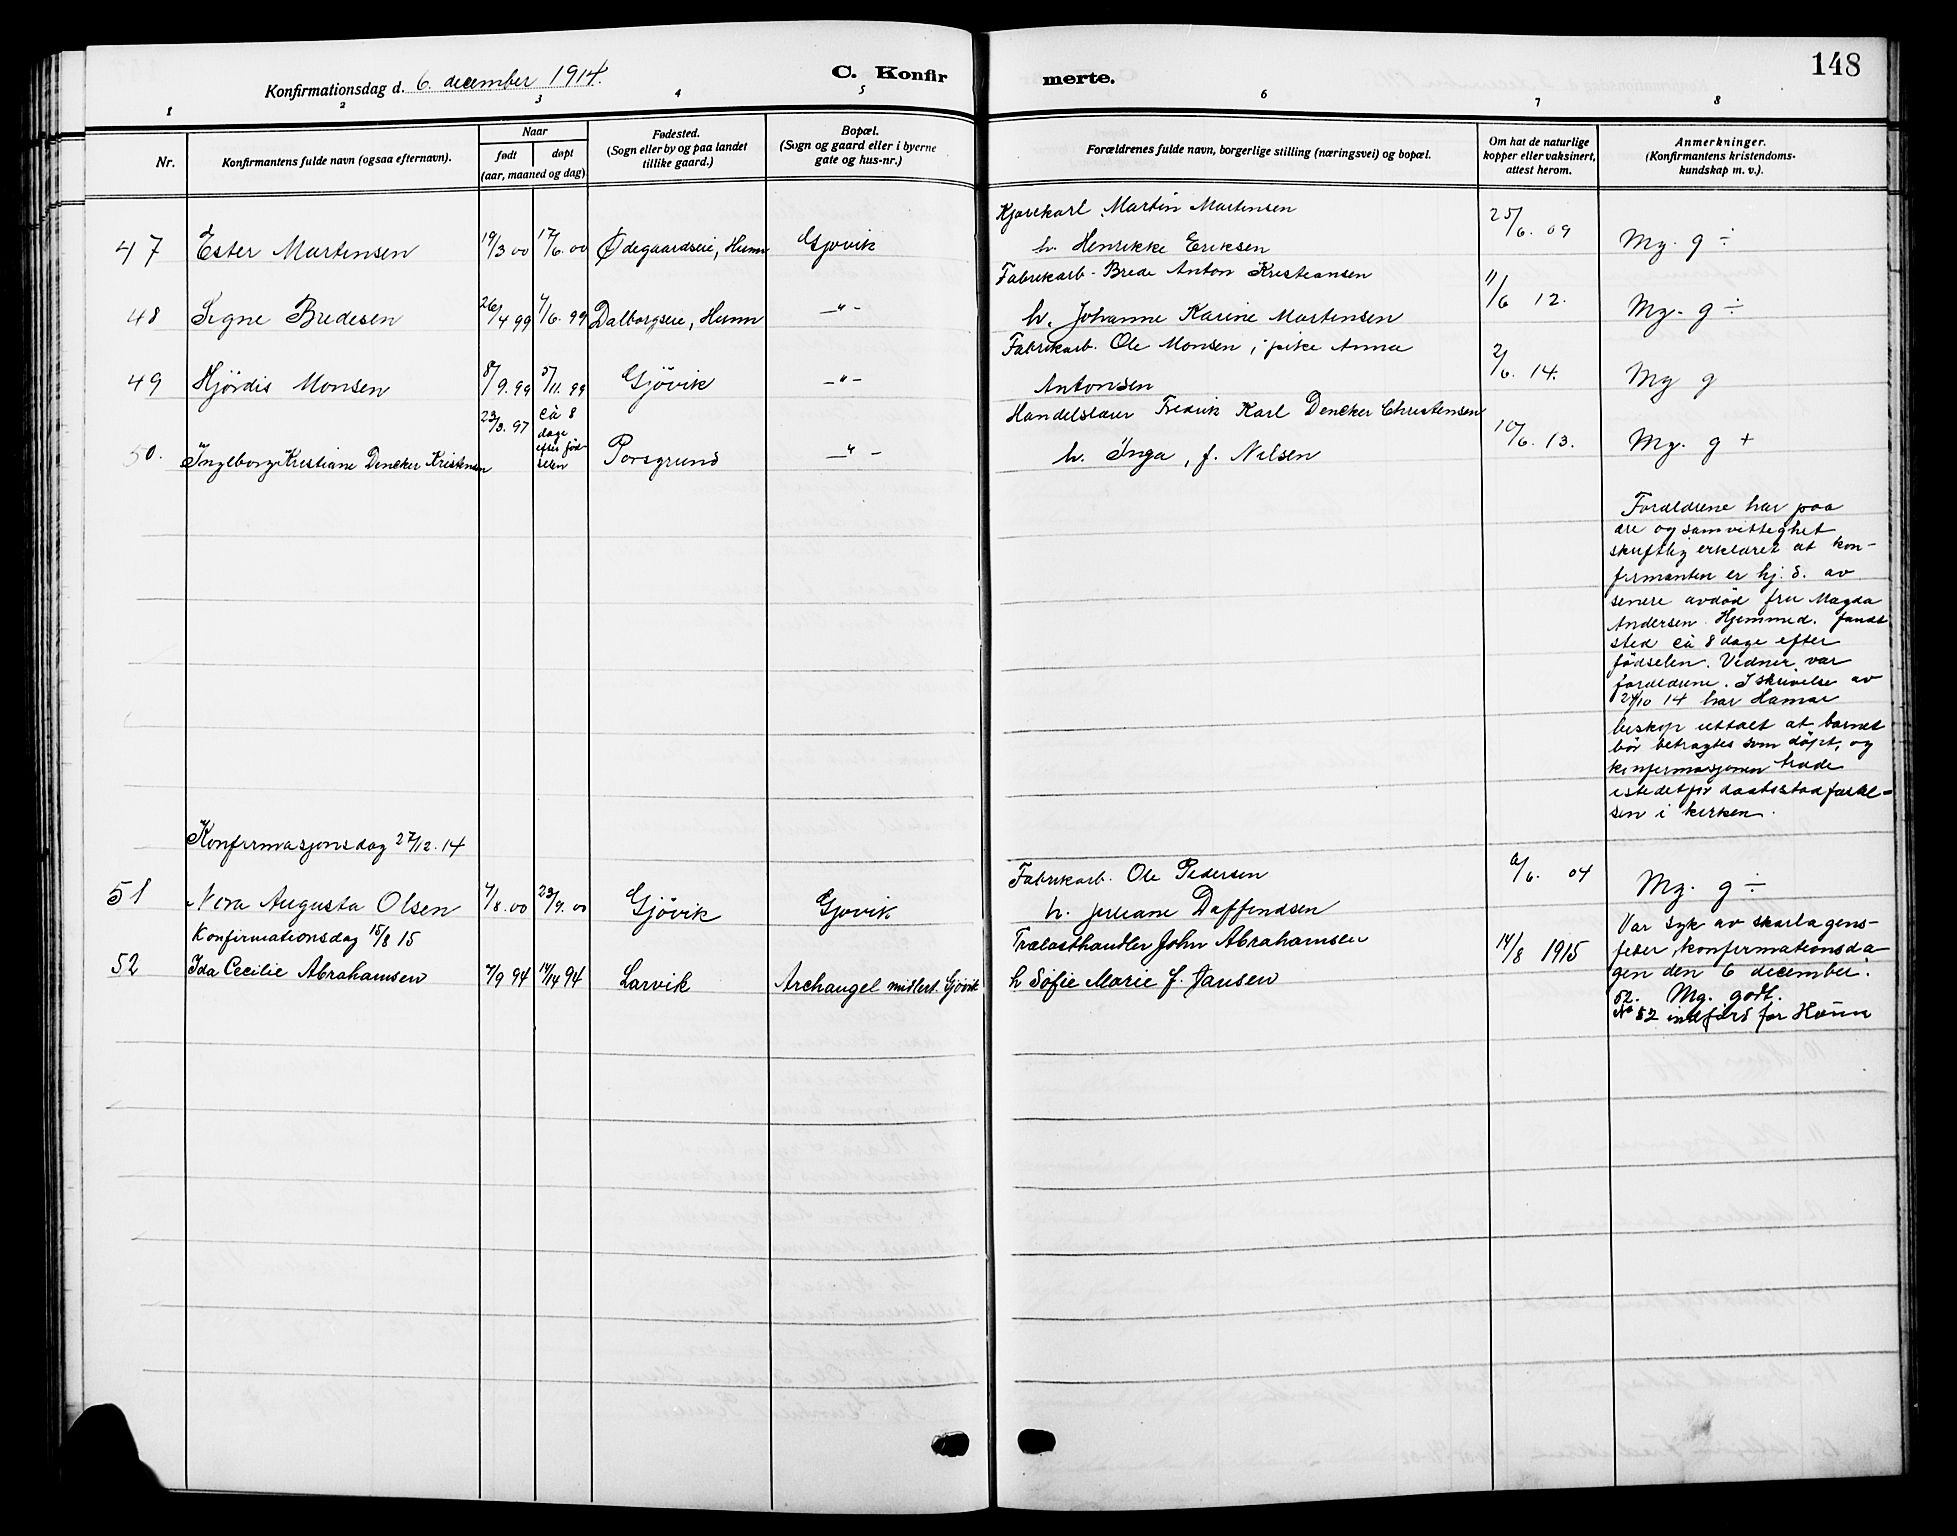 148
Konfirmationsdag d. 6. december 1914. C. Konfirmerte.
1 2 3 4 5 6 7 8
Nr. Konfirmantens fulde navn (ogsaa efternavn). Naar født døpt (aar, maaned og dag) Fødested. (Sogn eller by og paa landet tillike gaard.) Bopæl. (Sogn og gaard eller i byerne gate og hus-nr.) Forældrenes fulde navn, borgerlige stilling (næringsvei) og bopæl. Om hat de naturlige kopper eller vaksinert, attest herom. Anmerkninger. (Konfirmantens kristendomskundskap m. v.).
Kjørekarl Martin Martinsen
47 Ester Martinsen 19/3 00 17/6. 00 Ødegaardseie, Hunn Gjøvik h. Henrikke Eriksen 25/6. 09 Mg. g ÷
Fabrikarb. Brede Anton Kristiansen
48 Signe Bredesen 26/4 99 4/6. 99 Dalborgseie, Hunn -"- h. Johanne Karine Martensen 11/6 12. Mg. g ÷
Fabrikarb. Ole Monsen, pike Anna
49 Hjördis Monsen 8/9. 99 5/11. 99 Gjövik -"- Antonsen 2/6. 14. Mg g
Handelslærer Fredrik Karl Dencker Christensen
50. Ingeborg Kristiane Dencker Kristensen 23/3. 97 ca 8 dage efter fødselen Porsgrund -"- h. Inga, f. Nilsen 10/6. 13. Mg. g +
Forældrene har paa
ære og samvittighet
skriftlig erklæret at kon-
firmanten er hj. d. av
senere avdød fru Magda
Andersen. Hjemmed. fandt
sted ca 8 dage efter
fødselen. Vidner var
forældrene. I skrivelse av
24/10 14 har Hamar
biskop uttalt at barnet
bør betragtes som døpt, og
konfirmasjonen træde
istedetfor daabsstadfæstel-
sen i kirken.
Konfirmasjonsdag 27/12. 14
Fabrikarb. Ole Pedersen
51 Nora Augusta Olsen 4/8. 00 23/9. 00 Gjövik Gjøvik h. Juliane Daffindsen 6/6. 04 Mg. g ÷
Var syk av skarlagens-
feber, konfirmationsda-
gen den 6 december.
Konfirmationsdag 15/8 15
Trælasthandler John Abrahamsen
52 Ida Cecilie Abrahamsen 7/9 94 14/14 94 Larvik Archangel midlert. Gjövik h Sofie Marie f. Jansen 14/8 1915
52. Mg. godt.
No 52 indført for Hunn